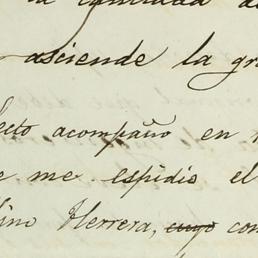 la cantidad de
asciende la gra
ecto acompaño en
e me espidio el
lino Herrera, cuyo con